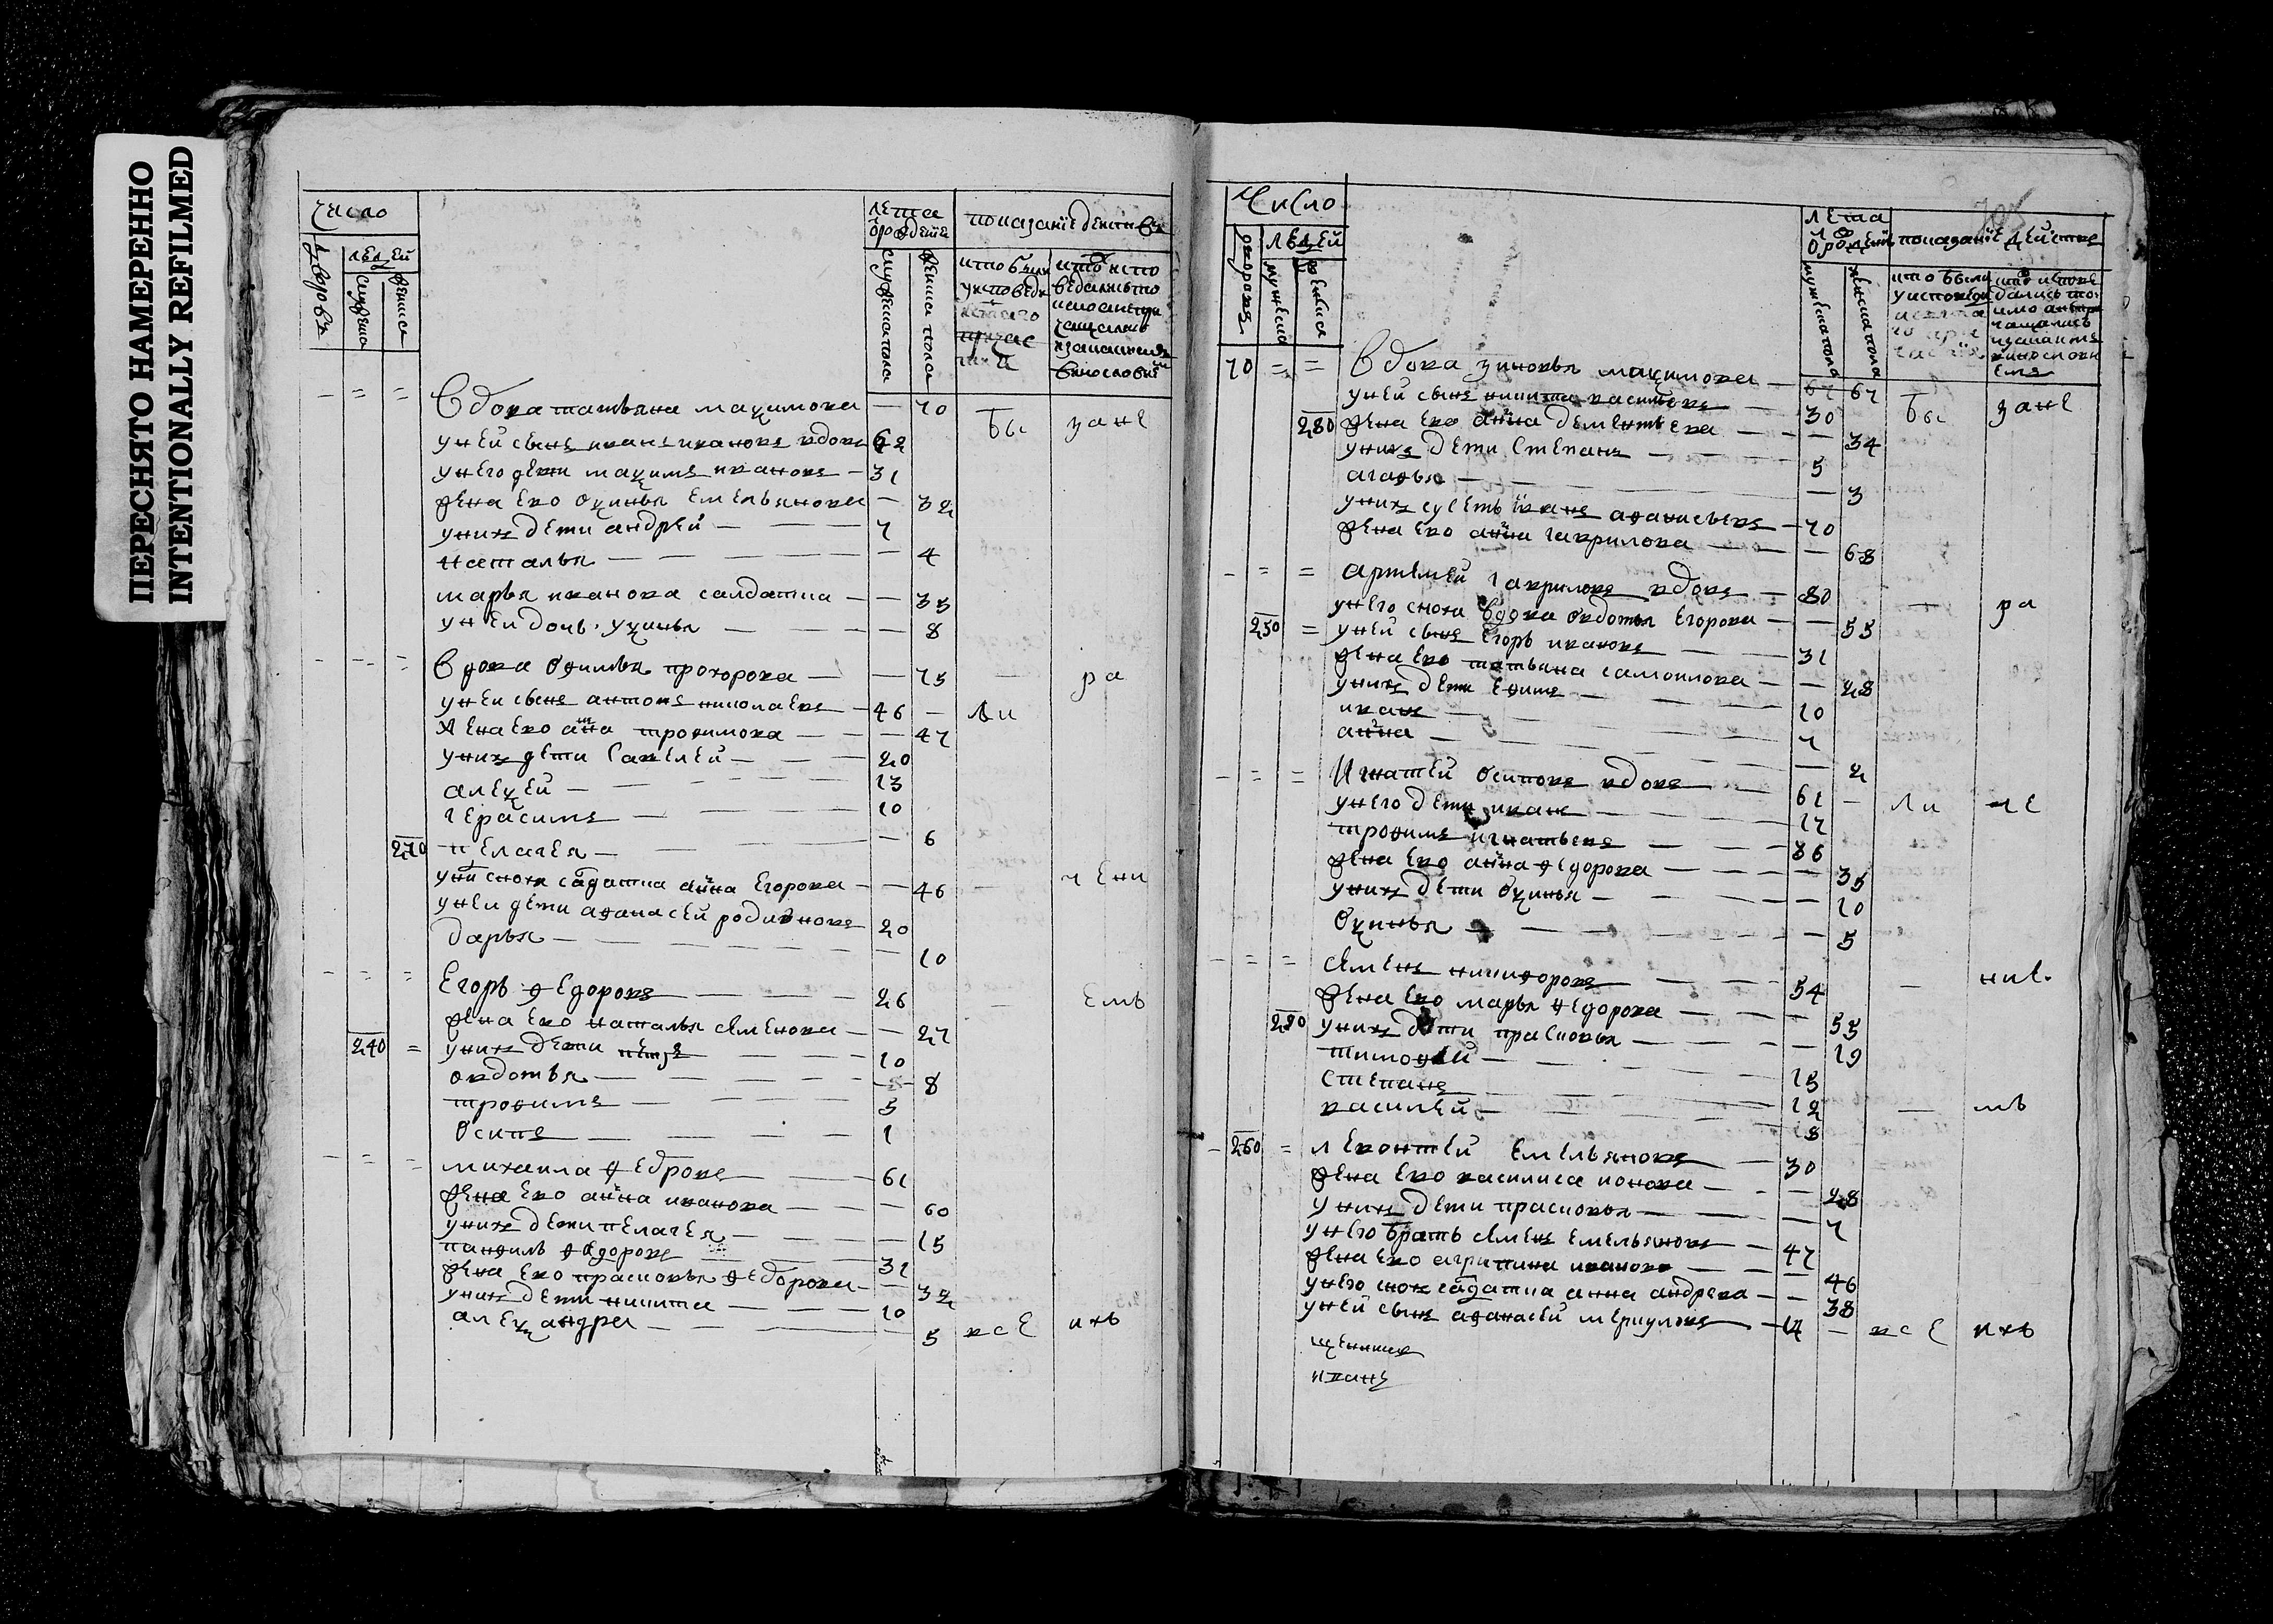 ПЕРЕСНЯТО НАМЕРЕННО
INTENTIONALLY REFILMED
число
дворовъ
людей
мужеска
женска
лета
ѿ рождения
мужеска пола
женска пола
показание действъ
кто были
у исповеди
кто испо
ведались то
винословий
вдова татьяна максимова — 70
бы
зане
у неи сынъ иванъ ивановъ вдовъ 62
у него дети максимъ ивановъ — 31
жена ево оксинья емельянова — 32
у нихъ дети андрей — 7
наталья — 4
марья иванова салдатка — 35
у неи дочь уксинья — 8
вдова офимья прохорова — 75 —
ра
у неи сынъ антонъ николаевъ — 46 —
ли
жена ево анна трофимова — 47
у нихъ дети савелей — 20
алексей — 13
герасимъ — 10
270 пелагея — 6
у ни сноха салдатка анна егорова — 46 —
чени
у неи дети афанасей родивоновъ 20
дарья — 10
егоръ федоровъ — 26 —
емъ
жена ево наталья семенова — 27
240 = у нихъ дети петръ — 10
овдотья — 8
трофимъ — 5
осипъ — 1
михаила федровъ — 61
жена ево анна иванова — 60
у нихъ дети пелагея — 15
панфилъ федоровъ — 31
жена ево прасковья федорова — 32
у нихъ дети никита — 10
александра — 5
все
ихъ
число
дворовъ
людей
мужеска
женска
лета
ѿ рождения
мужеска пола
женска пола
показание действъ
кто были
у исповеди
70 = = вдова зиновья максимова — 67
бы
зане
у ней сынъ никита васильевъ — 30
280 жена ево анна дементьева — 34
у нихъ дети степанъ — 5
агафья — 3
у нихъ суседъ иванъ афанасьевъ — 70
жена ево анна гаврилова — 68
артемей гавриловъ вдовъ — 80
—
ра
у него сноха вдова овдотья егорова — 55
250 = у ней сынъ егоръ ивановъ — 31
жена ево татьяна самоилова — 28
у нихъ дети ефимъ — 10
иванъ — 7
анна — 2
игнатей осиповъ вдовъ — 61 —
ли
че
у него дети иванъ — 17
трофимъ игнатьевъ — 36
жена ево анна федорова — 35
у нихъ дети оксинья — 10
оксинья — 5
семенъ никифоровъ — 54
—
ние
жена ево марья федорова — 55
290 у нихъ дети прасковья — 19
тимофей — 15
степанъ — 12
—
мъ
василей — 8
260 = леонтей емельяновъ — 30
жена ево василиса ионова — 28
у нихъ дети прасковья — 7
у него братъ семенъ емельяновъ — 47
жена ево агрипина иванова — 46
у него сноха салдатка анна андрева — 38
у ней сынъ афанасей меркуловъ — 17 —
все
ихъ
щенникъ
иванъ